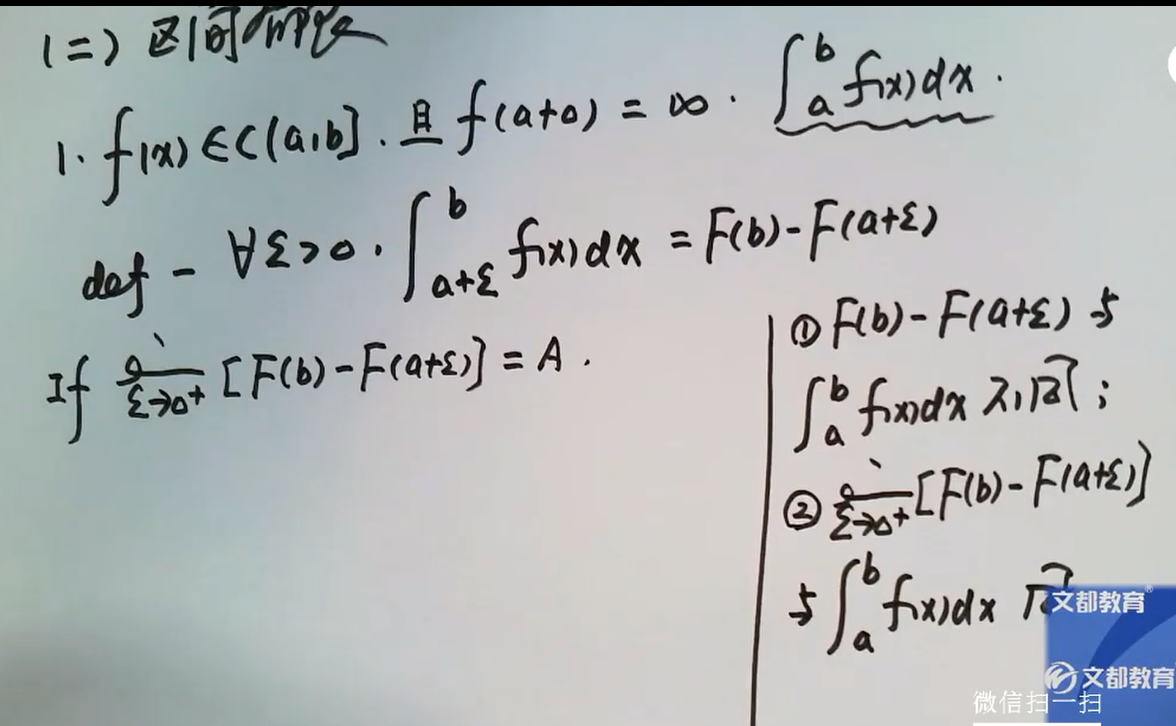 (二) 区间有限
1. f(x)∈C(a,b]. 且 f(a+0) = ∞. ∫_a^b f(x)dx.
def - ∀ε>0. ∫_{a+ε}^b f(x)dx = F(b)-F(a+ε)
If lim_{ε→0+} [F(b)-F(a+ε)] = A.
① F(b)-F(a+ε) 与
∫_a^b f(x)dx 不同;
② lim_{ε→0+} [F(b)-F(a+ε)]
与 ∫_a^b f(x)dx 同
文都教育
文都教育
微信扫一扫